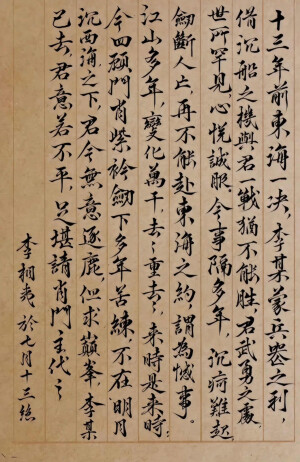 十三年前東海一决，李某蒙兵器之利，
借沉船之機與君一戰猶不能勝，君武勇之處，
世所罕見，心悦誠服。今事隔多年，沉疴難起，
劍斷人亡，再不能赴東海之約，謂為憾事。
江山多年，變化萬千，去去重去去，来時是来時；
今四顧門肖紫衿劍下多年苦練，不在明月
沉西海之下，君今無意逐鹿，但求巔峯，李某
已去，君意若不平，足堪請肖門主代之
李相夷於七月十三絕